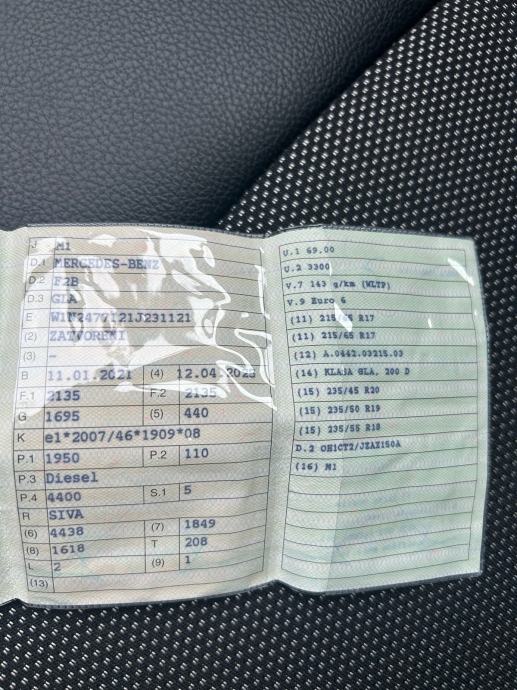 J M1
D.1 MERCEDES-BENZ
D.2 F2B
D.3 GLA
E W1N2477121J231121
(2) ZATVORENI
(3) –
B 11.01.2021 (4) 12.04.2023
F.1 2135 F.2 2135
G 1695 (5) 440
K e1*2007/46*1909*08
P.1 1950 P.2 110
P.3 Diesel
P.4 4400 S.1 5
R SIVA
(6) 4438 (7) 1849
(8) 1618 T 208
L 2 (9) 1
(13)
U.1 69.00
U.2 3300
V.7 143 g/km (WLTP)
V.9 Euro 6
(11) 215/65 R17
(11) 215/65 R17
(12) A.0442.03215.03
(14) KLASA GLA, 200 D
(15) 235/45 R20
(15) 235/50 R19
(15) 235/55 R18
D.2 OH1CT2/JZAZ150A
(16) M1